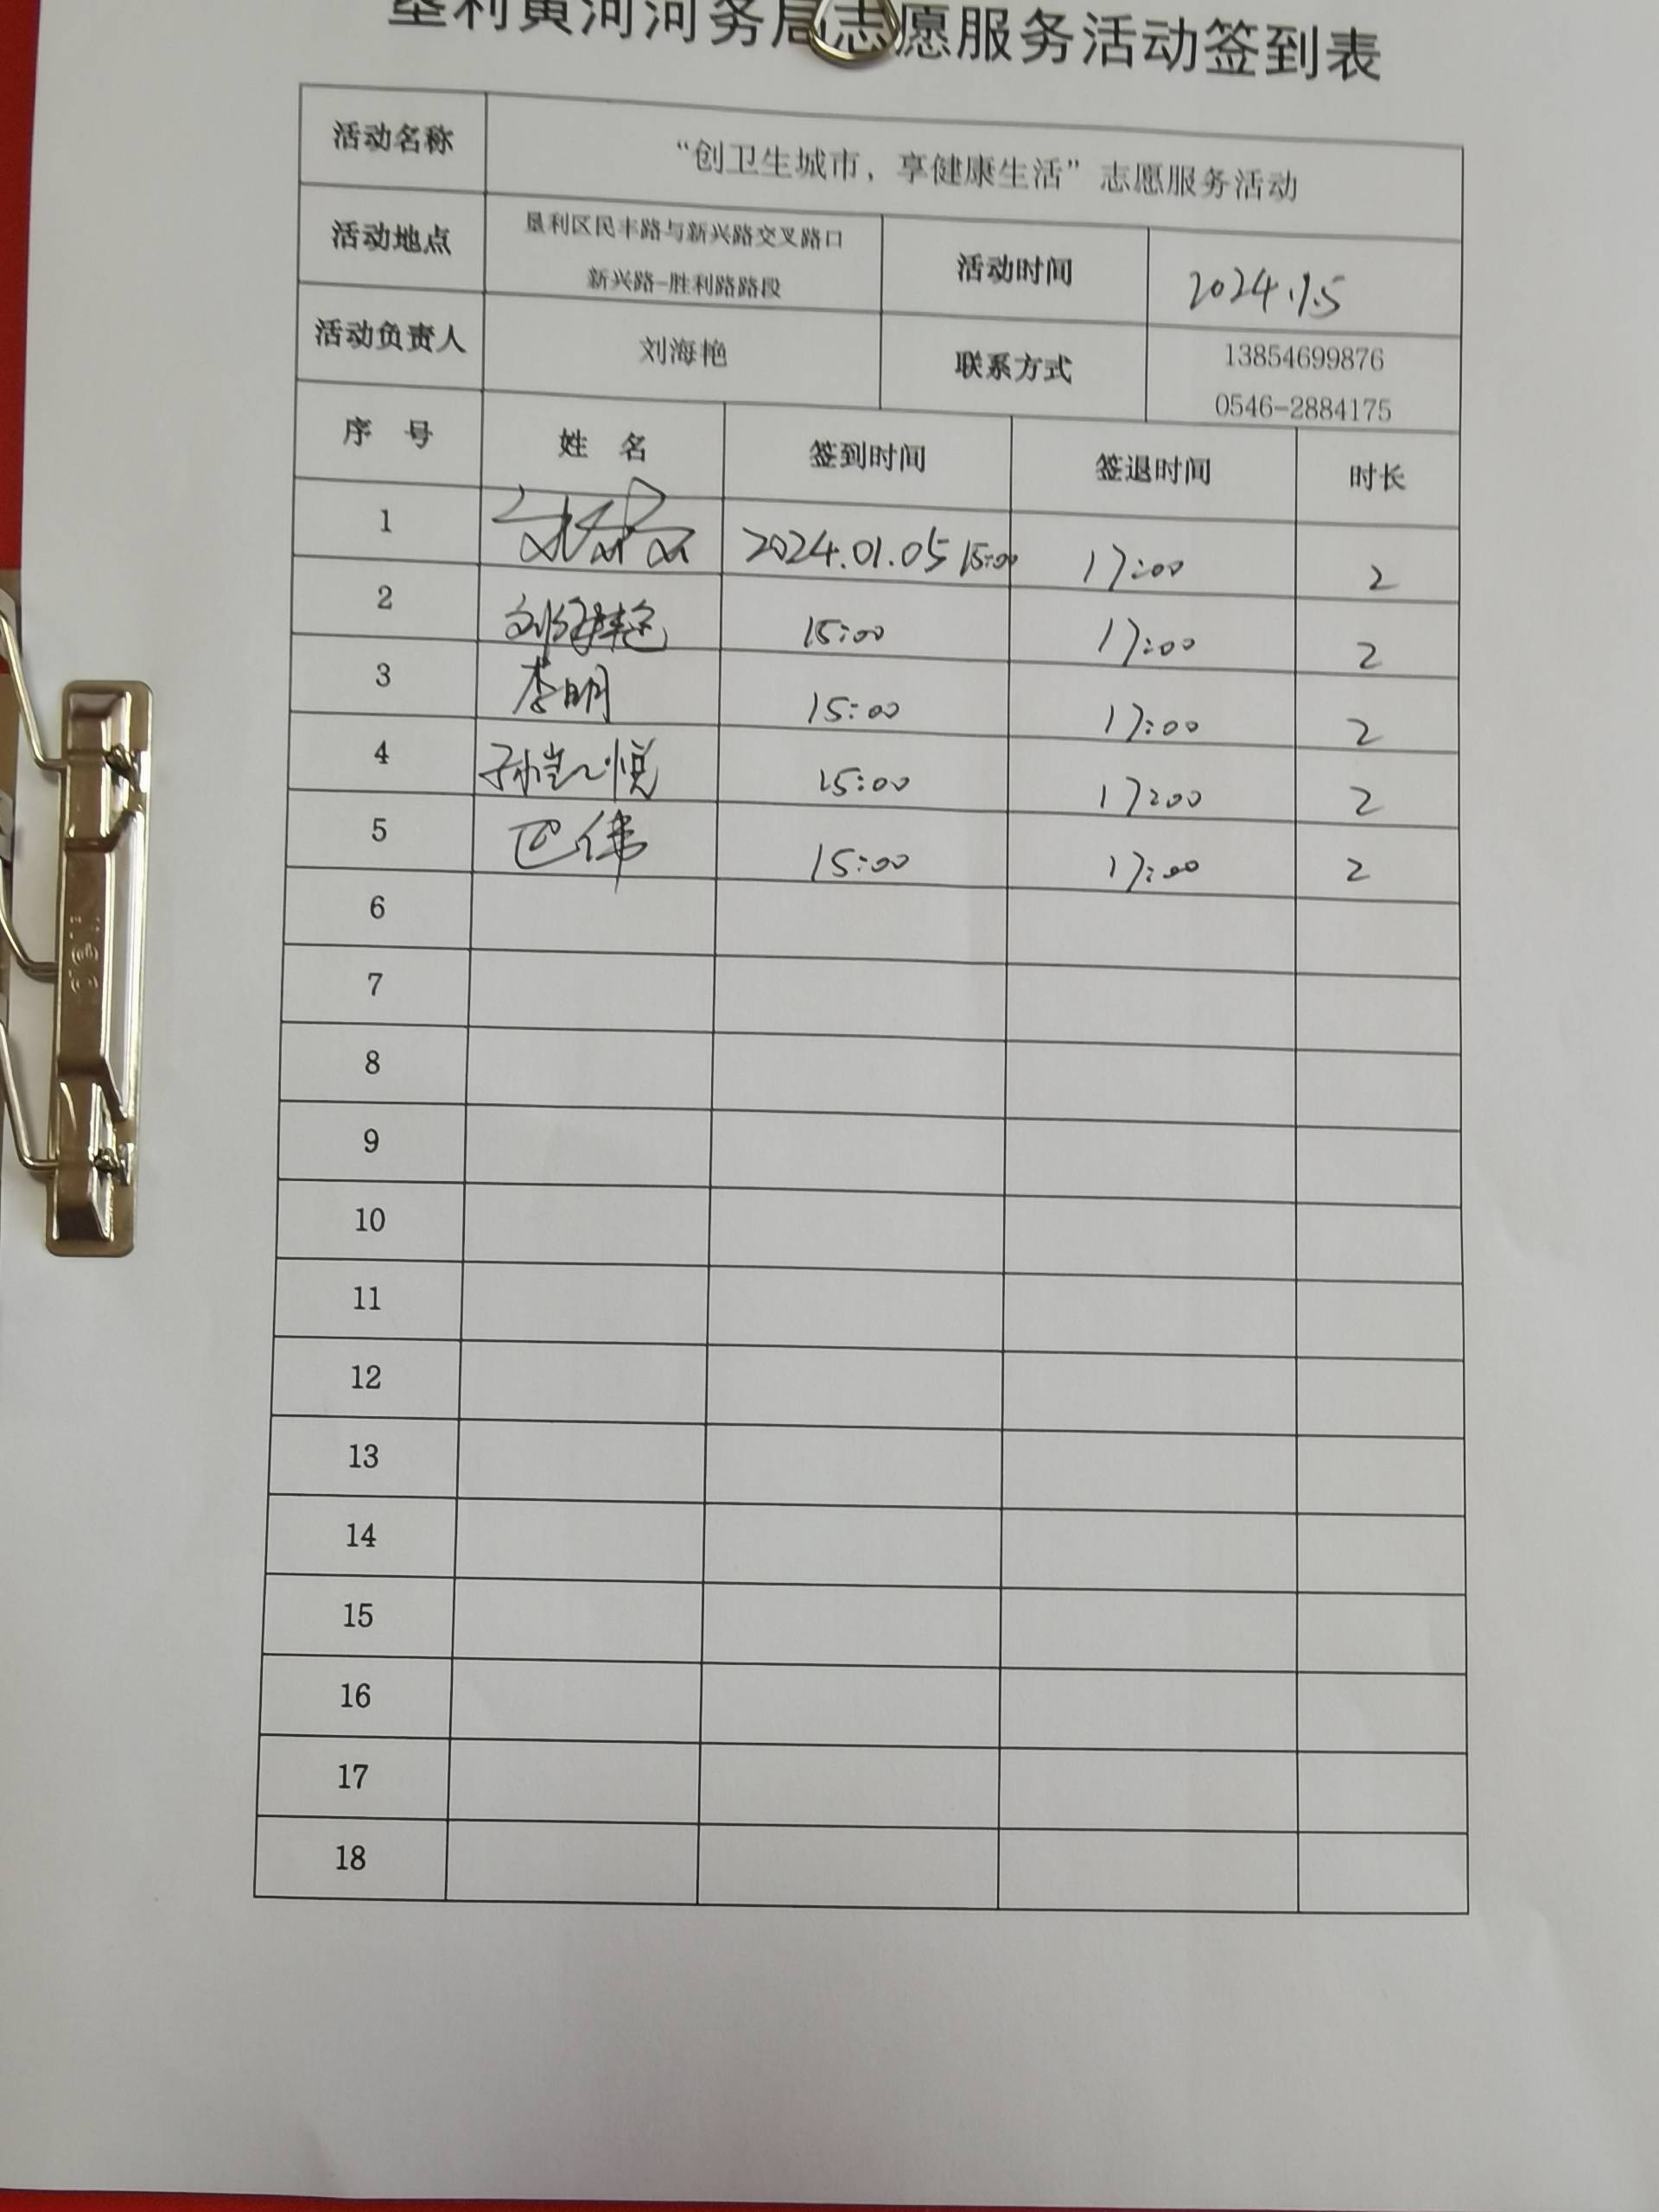 垦利黄河河务局志愿服务活动签到表
活动名称 “创卫生城市，享健康生活”志愿服务活动
活动地点 垦利区民丰路与新兴路交叉路口 活动时间 2024.1.5
新兴路-胜利路路段
活动负责人 刘海艳 联系方式 13854699876
0546-2884175
序 号 姓 名 签到时间 签退时间 时长
1 2024.01.05 15:00 17:00 2
2 15:00 17:00 2
3 李明 15:00 17:00 2
4 孙凯悦 15:00 17:00 2
5 巴伟 15:00 17:00 2
6
7
8
9
10
11
12
13
14
15
16
17
18